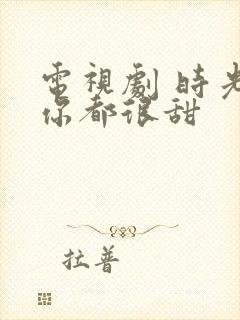 電視劇 時光
你都很甜
拉普